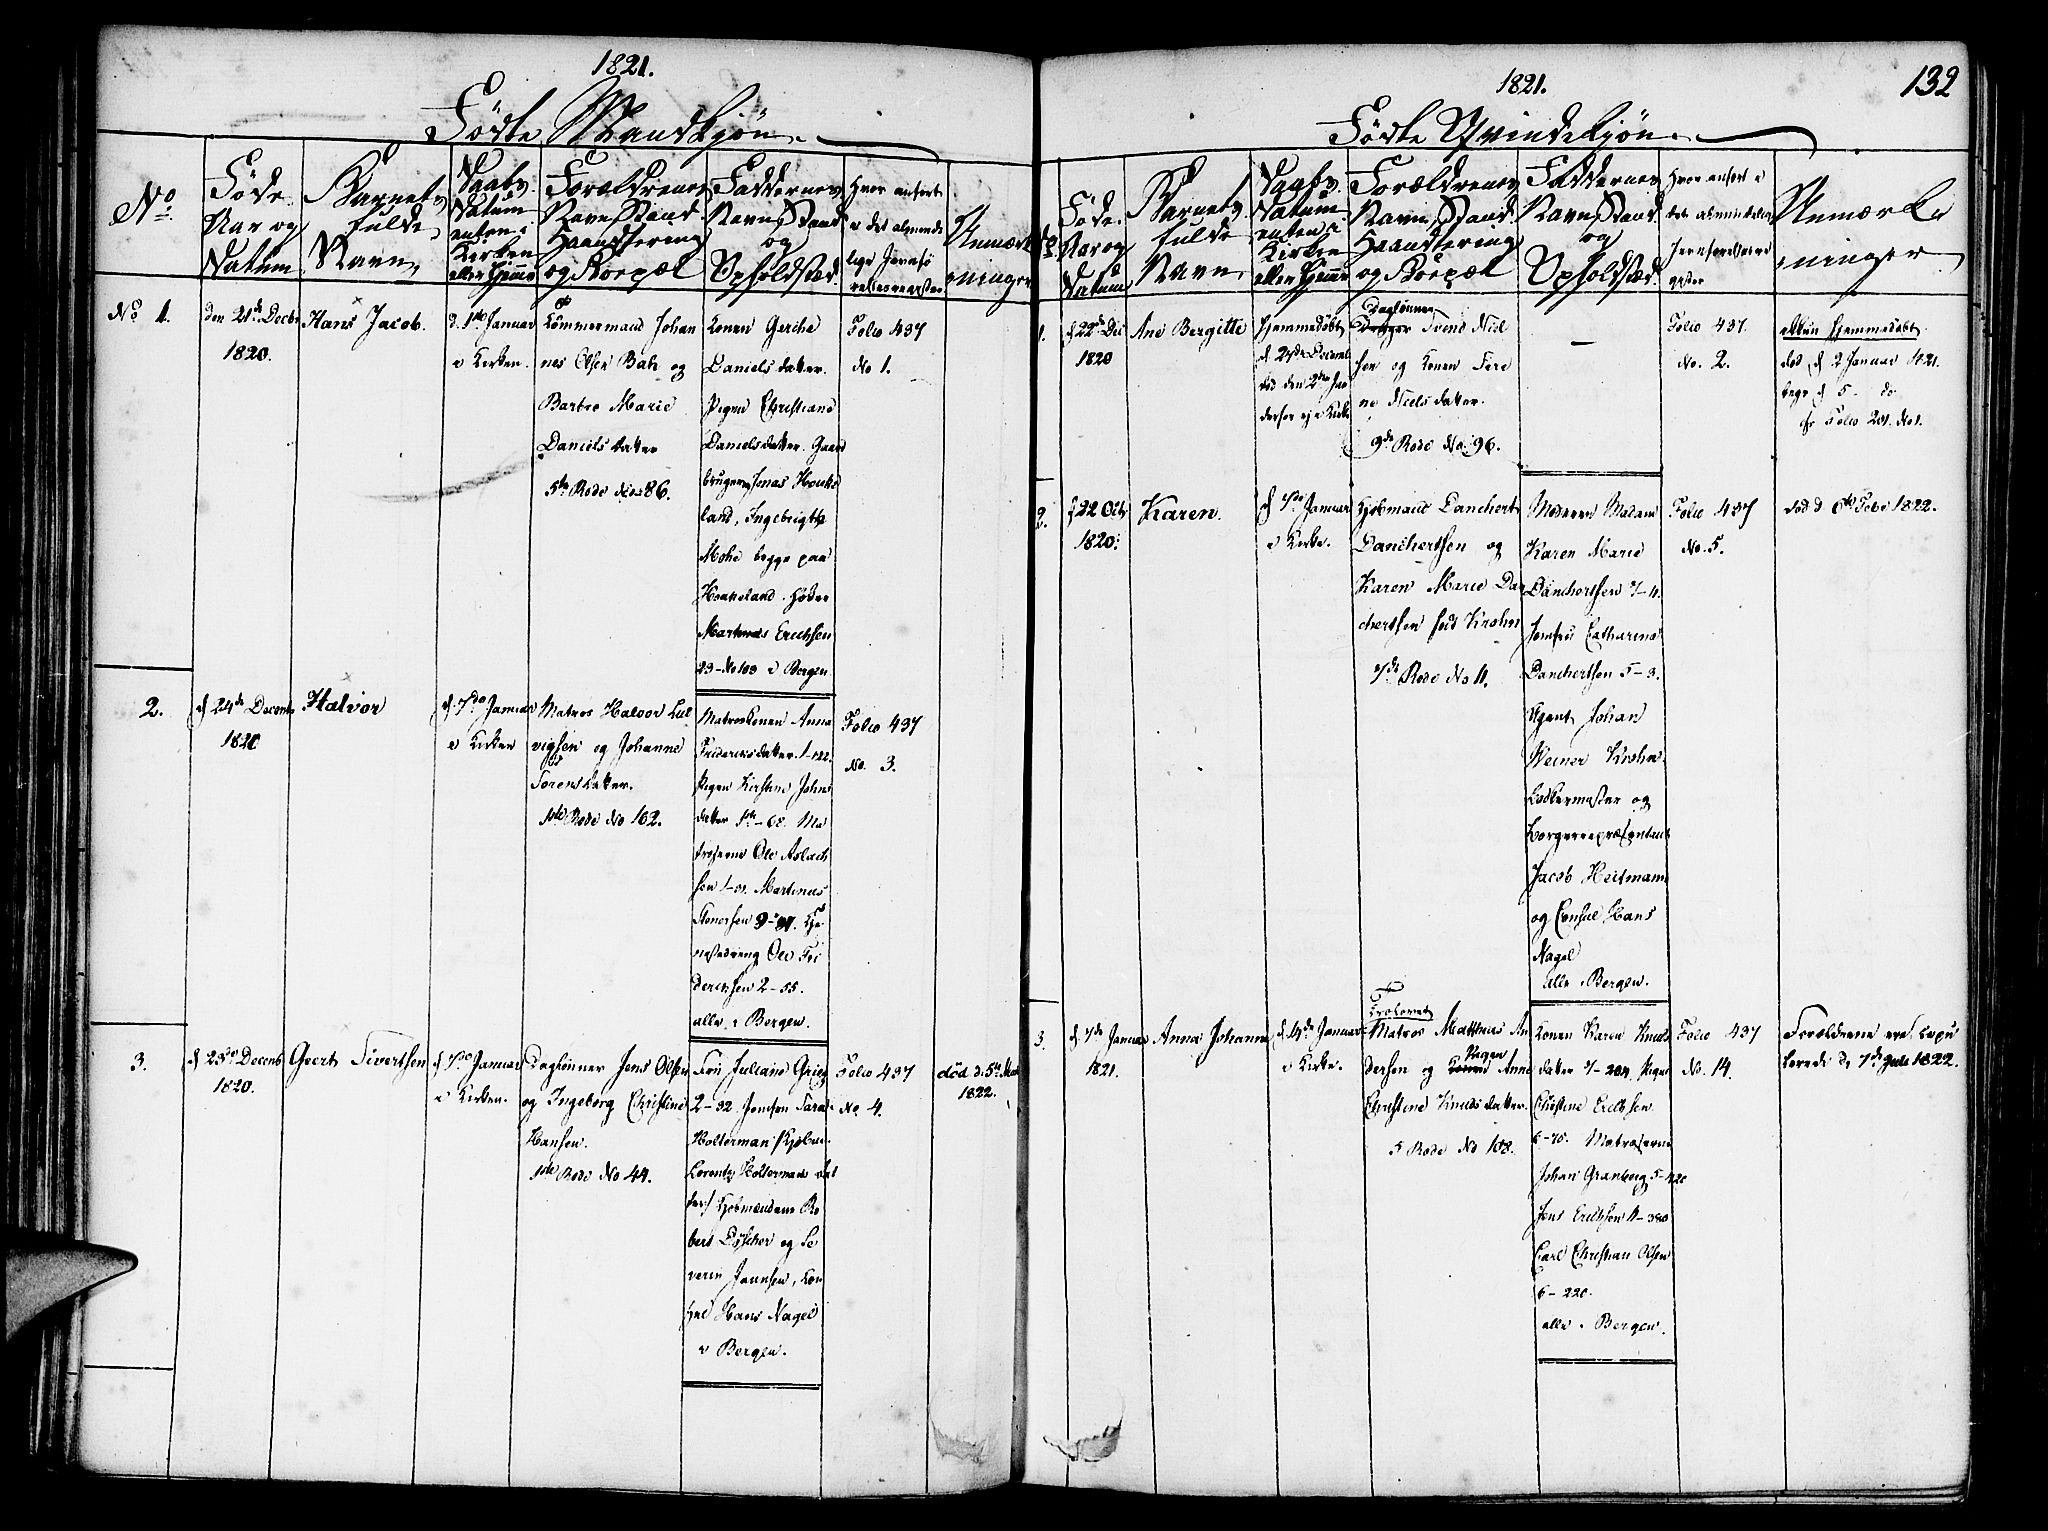 1821.
Fødte Mandkjøn.
No
Føde
Aar og
Datum
Barnets
fulde
Navn
Daabs
Datum
enten i
Kirken
eller Hjemme
Forældrenes
Navn, Stand
Haandtering
og Roepæl
Faddernes
Navn, Stand
og
Opholdsted.
Hvor anført
i det alminde
lige Jevnfø
relsesregister
Anmærk
ninger
No 1.
den 21de Decbr
1820.
Hans Jacob.
d. 1ste Januar
i Kirken.
Tømmermand Johan
nes Olsen Bah og
Barbro Marie
Danielsdatter
5te Rode No 86.
Konen Gerche
Danielsdatter.
Pigen Christiane
Danielsdatter. Gaard
brugerne Jonas Houke
land, Ingebrigth
Mohe begge paa
Houkeland.
Martinus Erichsen
23-No 103 i Bergen
Folio 437
No 1.
2.
d 24de Decemb
1820
Halvor
d. 7de Januar
i Kirken
Matros Halvor Lul
vigsen og Johanne
Torensdatter.
1ste Rode No 162.
Matroskonen Anna
Fridericsdatter. 1-122.
Pigen Kirstine Johns
datter 1te-68. Ma
troserne Ole Aslach
sen 1-31. Martinus
Stenersen 9-97.
nestedreng Ole Fri
derichsen 2-55.
alle i Bergen.
Folio 437
No. 3.
3.
d 23de Decemb
1820.
Geert Sivertsen
d 7de Januar
i Kirken.
Daglønner Jens Olsen
og Ingeborg Christine
Hansen.
1ste Rode No 44.
Fru Juliane Grieg
2-32. Jomfru Sara
Holterman Kjøbm.
Lorentz Holterman
Kjøbmændene Ro
bert Düscher og Se
verin Jannsen, Con
sul Hans Nagel
i Bergen.
Folio 437
No. 4.
død d. 5te Mai
1822.
132
1821.
Fødte Qvindekjøn.
No
Føde
Aar og
Datum
Barnets
fulde
Navn
Daabs
Datum
enten i
Kirken
eller Hjemme
Forældrenes
Navn, Stand
Haandtering
og Roepæl
Faddernes
Navn, Stand
og
Opholdsted.
Hvor anført i
det almindelige
Jevnførelsesre
gister
Anmærk
ninger
1.
d 22de Dec
1820
Ane Bergitte
Hjemmedøbt
d 24de Decemb
død den 2den Jan
derfor ej i Kirke
Daglønner
Svend Niel
sen og Konen Sire
ne Nielsdatter.
9de Rode No. 96.
—
Folio 437.
No. 2.
ikkun Hjemmedøbt
død d 2 Januar 1821.
begr d 5. do
Folio 201. No 1.
2.
d 22 Octr
1820.
Karen.
d 7de Januar
i Kirke.
Kjøbmand Danchert
Danchertsen og
Karen Marie Dan
chertsen fød Krohn
7de Rode No 11.
Moderen Madam
Karen Marie
Danchertsen 7-11.
Jomfru Catharina
Danchertsen 5-3.
Agent Johan
Weiner Krohn.
Lodtermester og
Borgerrepræsentant
Jacob Heitmann
og Consul Hans
Nagel
alle i Bergen.
Folio 437
No. 5.
død d. 6te Febr 1822.
3.
d 7de Januar
1821.
Anna Johanna
d 14de Januar
i Kirke.
Trolovet
Matros Matthias An
dersen og Pigen Anne
Christine Knudsdatter.
5 Rode No 108.
Konen Karen Knuds
datter 7-204. Pigen
Christine Erichsen
6-70. Matroserne
Johan Granberg 5-120
Jens Erichsen 11-380
Carl Christian Olsen
6-220.
alle i Bergen.
Folio 437
No. 14.
Forældrene ere Copu
lerede d. 7de Juli 1822.